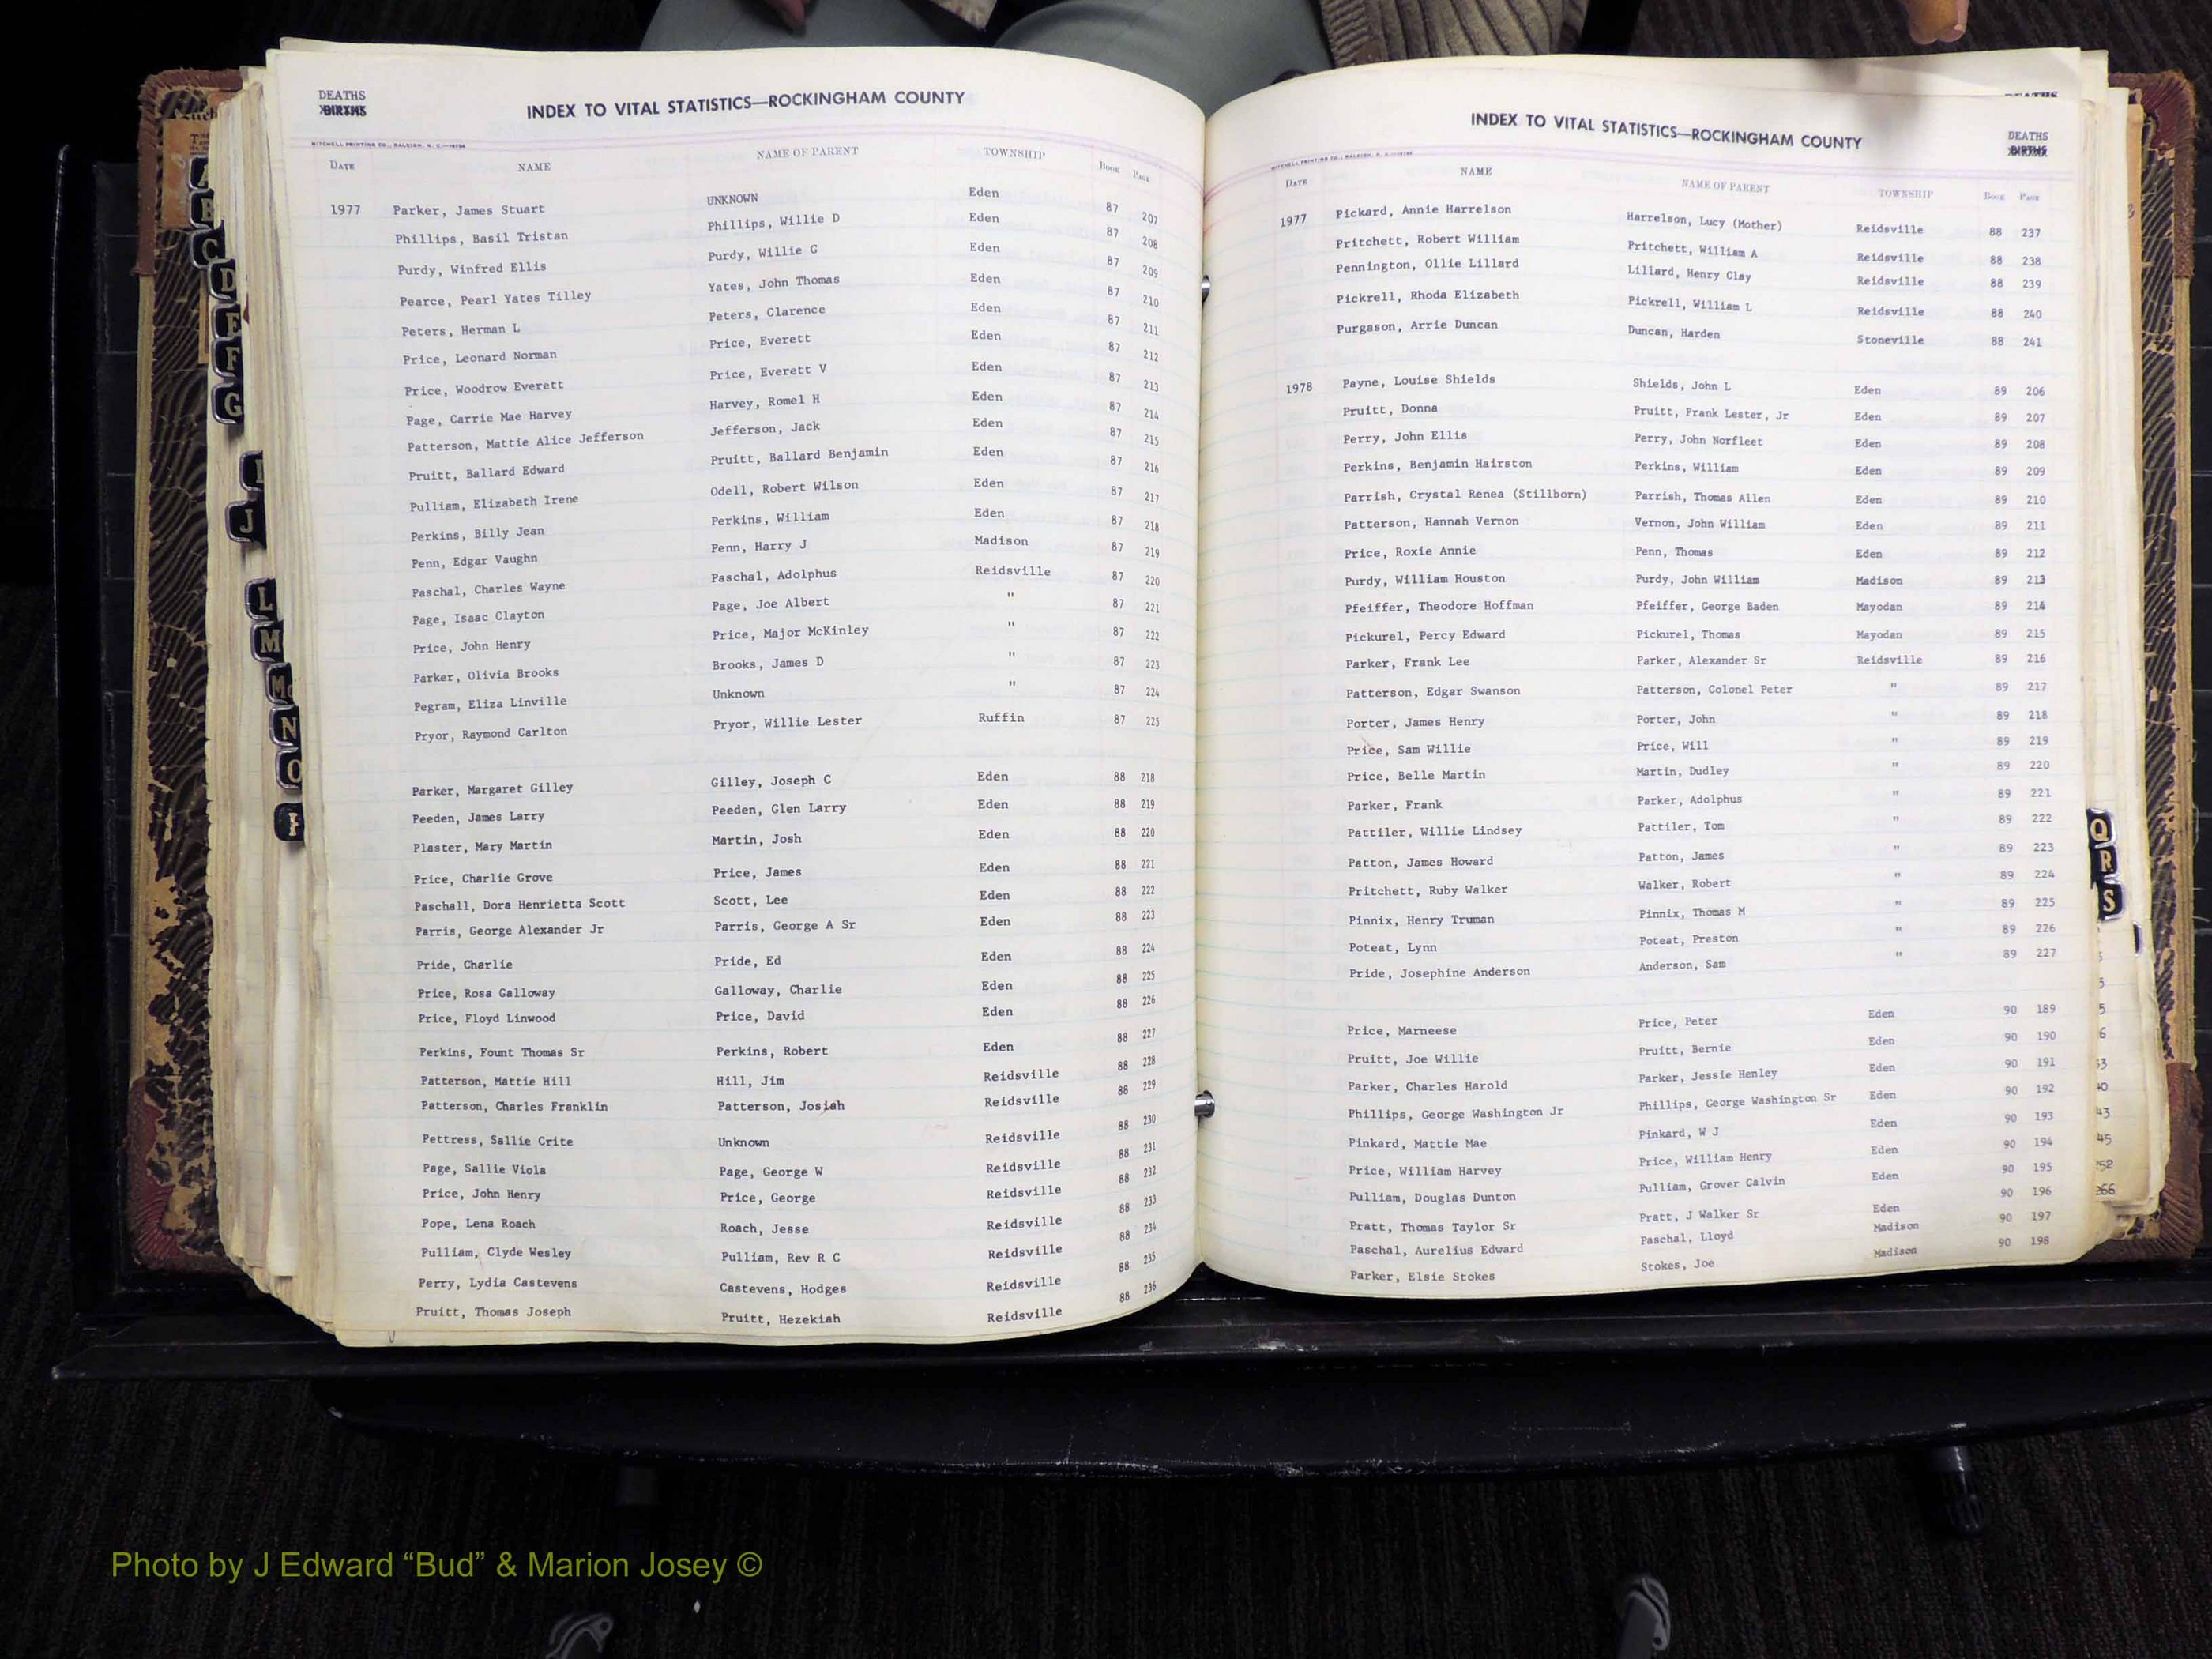 DEATHS
BIRTHS
INDEX TO VITAL STATISTICS—ROCKINGHAM COUNTY
MITCHELL PRINTING CO., RALEIGH, N. C.
DATE NAME NAME OF PARENT TOWNSHIP BOOK PAGE
1977 Parker, James Stuart UNKNOWN Eden 87 207
Phillips, Basil Tristan Phillips, Willie D Eden 87 208
Purdy, Winfred Ellis Purdy, Willie G Eden 87 209
Pearce, Pearl Yates Tilley Yates, John Thomas Eden 87 210
Peters, Herman L Peters, Clarence Eden 87 211
Price, Leonard Norman Price, Everett Eden 87 212
Price, Woodrow Everett Price, Everett V Eden 87 213
Page, Carrie Mae Harvey Harvey, Romel H Eden 87 214
Patterson, Mattie Alice Jefferson Jefferson, Jack Eden 87 215
Pruitt, Ballard Edward Pruitt, Ballard Benjamin Eden 87 216
Pulliam, Elizabeth Irene Odell, Robert Wilson Eden 87 217
Perkins, Billy Jean Perkins, William Eden 87 218
Penn, Edgar Vaughn Penn, Harry J Madison 87 219
Paschal, Charles Wayne Paschal, Adolphus Reidsville 87 220
Page, Isaac Clayton Page, Joe Albert " 87 221
Price, John Henry Price, Major McKinley " 87 222
Parker, Olivia Brooks Brooks, James D " 87 223
Pegram, Eliza Linville Unknown " 87 224
Pryor, Raymond Carlton Pryor, Willie Lester Ruffin 87 225
Parker, Margaret Gilley Gilley, Joseph C Eden 88 218
Peeden, James Larry Peeden, Glen Larry Eden 88 219
Plaster, Mary Martin Martin, Josh Eden 88 220
Price, Charlie Grove Price, James Eden 88 221
Paschall, Dora Henrietta Scott Scott, Lee Eden 88 222
Parris, George Alexander Jr Parris, George A Sr Eden 88 223
Pride, Charlie Pride, Ed Eden 88 224
Price, Rosa Galloway Galloway, Charlie Eden 88 225
Price, Floyd Linwood Price, David Eden 88 226
Perkins, Fount Thomas Sr Perkins, Robert Eden 88 227
Patterson, Mattie Hill Hill, Jim Reidsville 88 228
Patterson, Charles Franklin Patterson, Josiah Reidsville 88 229
Pettress, Sallie Crite Unknown Reidsville 88 230
Page, Sallie Viola Page, George W Reidsville 88 231
Price, John Henry Price, George Reidsville 88 232
Pope, Lena Roach Roach, Jesse Reidsville 88 233
Pulliam, Clyde Wesley Pulliam, Rev R C Reidsville 88 234
Perry, Lydia Castevens Castevens, Hodges Reidsville 88 235
Pruitt, Thomas Joseph Pruitt, Hezekiah Reidsville 88 236
A
B
C
D
E
F
G
I
J
L
M
Mc
N
O
P
INDEX TO VITAL STATISTICS—ROCKINGHAM COUNTY
DEATHS
DEATHS
BIRTHS
MITCHELL PRINTING CO., RALEIGH, N. C.
DATE NAME NAME OF PARENT TOWNSHIP BOOK PAGE
1977 Pickard, Annie Harrelson Harrelson, Lucy (Mother) Reidsville 88 237
Pritchett, Robert William Pritchett, William A Reidsville 88 238
Pennington, Ollie Lillard Lillard, Henry Clay Reidsville 88 239
Pickrell, Rhoda Elizabeth Pickrell, William L Reidsville 88 240
Purgason, Arrie Duncan Duncan, Harden Stoneville 88 241
1978 Payne, Louise Shields Shields, John L Eden 89 206
Pruitt, Donna Pruitt, Frank Lester, Jr Eden 89 207
Perry, John Ellis Perry, John Norfleet Eden 89 208
Perkins, Benjamin Hairston Perkins, William Eden 89 209
Parrish, Crystal Renea (Stillborn) Parrish, Thomas Allen Eden 89 210
Patterson, Hannah Vernon Vernon, John William Eden 89 211
Price, Roxie Annie Penn, Thomas Eden 89 212
Purdy, William Houston Purdy, John William Madison 89 213
Pfeiffer, Theodore Hoffman Pfeiffer, George Baden Mayodan 89 214
Pickurel, Percy Edward Pickurel, Thomas Mayodan 89 215
Parker, Frank Lee Parker, Alexander Sr Reidsville 89 216
Patterson, Edgar Swanson Patterson, Colonel Peter " 89 217
Porter, James Henry Porter, John " 89 218
Price, Sam Willie Price, Will " 89 219
Price, Belle Martin Martin, Dudley " 89 220
Parker, Frank Parker, Adolphus " 89 221
Pattiler, Willie Lindsey Pattiler, Tom " 89 222
Patton, James Howard Patton, James " 89 223
Pritchett, Ruby Walker Walker, Robert " 89 224
Pinnix, Henry Truman Pinnix, Thomas M " 89 225
Poteat, Lynn Poteat, Preston " 89 226
Pride, Josephine Anderson Anderson, Sam " 89 227
Price, Marneese Price, Peter Eden 90 189
Pruitt, Joe Willie Pruitt, Bernie Eden 90 190
Parker, Charles Harold Parker, Jessie Henley Eden 90 191
Phillips, George Washington Jr Phillips, George Washington Sr Eden 90 192
Pinkard, Mattie Mae Pinkard, W J Eden 90 193
Price, William Harvey Price, William Henry Eden 90 194
Pulliam, Douglas Dunton Pulliam, Grover Calvin Eden 90 195
Pratt, Thomas Taylor Sr Pratt, J Walker Sr Eden 90 196
Paschal, Aurelius Edward Paschal, Lloyd Madison 90 197
Parker, Elsie Stokes Stokes, Joe Madison 90 198
Q
R
S
Photo by J Edward “Bud” & Marion Josey ©